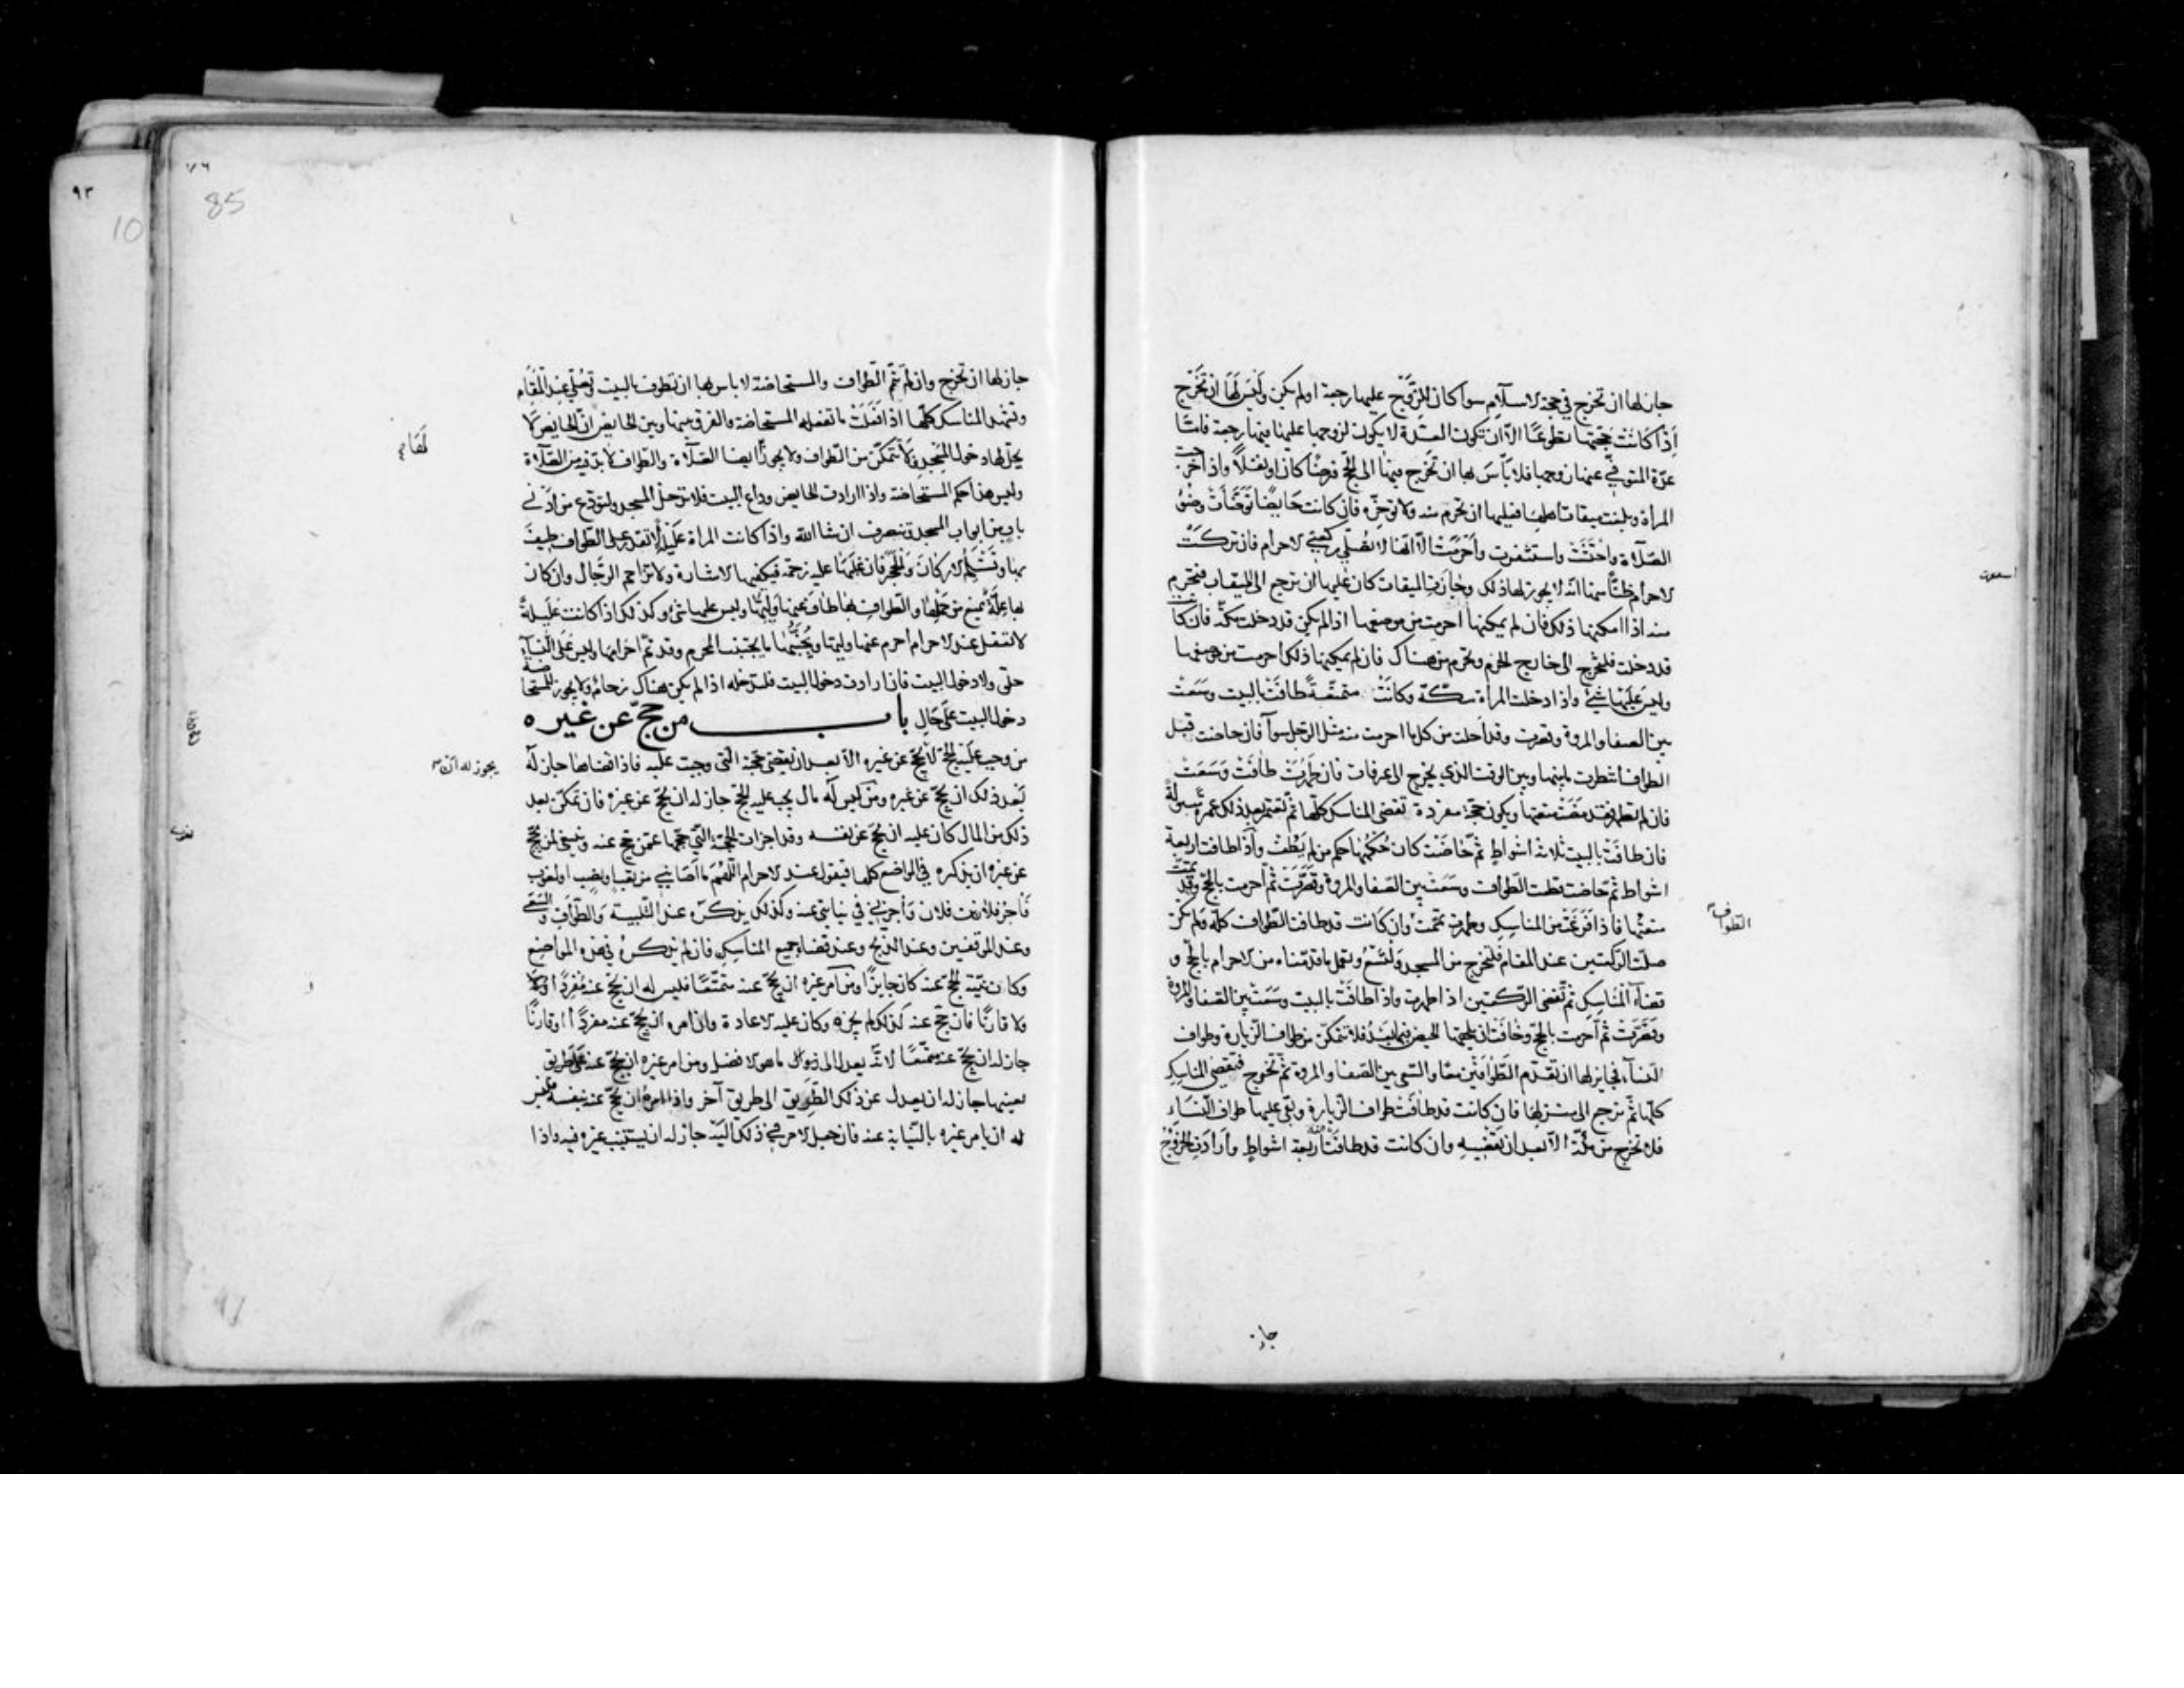 جاز لها ان تخرج في حجة الاسلام سوآ كان للزوج عليها رجعة او لم يكن وليس لها ان تخرج
اذا كانت حجتها تطوعا الا ان تكون العدة لا يكون لزوجها عليها فيها رجعة فاما
عدة المتوفى عنها زوجها فلا بأس بها ان تخرج فيها الى الحج فرضا كان او نفلا واذا خرجت
المرأة وبلغت ميقات اهلها فعليها ان تحرم منه ولا تؤخره فان كانت حايضا توضأت وضوء
الصلاة واحتشت واستثفرت واحرمت الا انها لا تصلي ركعتي الاحرام فان تركت
الاحرام ظنا منها انه لا يجوز لها ذلك وجازت الميقات كان عليها ان ترجع الى الميقات فتحرم
منه اذا امكنها ذلك فان لم يمكنها احرمت من موضعها اذا لم يكن قد دخلت مكة فان كا
قد دخلت فلتخرج الى خارج الحرم وتحرم من هناك فان لم يمكنها ذلك احرمت من موضعها
وليس عليها شئ واذا دخلت المرأة مكة وكانت متمتعة طافت بالبيت وسعت
بين الصفا والمروة وقصرت وقد احلت من كل ما احرمت منه مثل الرجل سوآ فان حاضت قبل
الطواف انتظرت ما بينها وبين الوقت الذي يخرج الى عرفات فان طهرت طافت وسعت
فان لم تطهر فقد مضت متعتها ويكون حجة مفردة تقضى المناسك كلها ثم تعتمر بعد ذلك عمرة مبتولة
فان طافت بالبيت ثلاثة اشواط ثم حاضت كان حكمها حكم من لم يطف واذا طافت اربعة
اشواط ثم حاضت قطعت الطواف وسعت بين الصفا والمروة وقصرت ثم احرمت بالحج وقد تمت
متعتها فاذا فرغت من المناسك وطهرت تممت وان كانت قد طافت الطواف كله ولم تكن
الطواف
صلت الركعتين عند المقام فلتخرج من المسجد ولتسع وتعمل ما قدمناه من الاحرام بالحج و
قضاء المناسك ثم تقضى الركعتين اذا طهرت واذا طافت بالبيت وسعت بين الصفا والمروة
وقصرت ثم احرمت بالحج وخافت ان يلحقها الحيض فيما بعد فلا تتمكن من طواف الزيارة وطواف
النسآء فجايز لها ان تقدم الطوافين معا والسعي بين الصفا والمروة ثم تخرج فتقضي المناسك
كلها ثم ترجع الى منزلها فان كانت قد طافت طواف الزيارة وبقى عليها طواف النساء
فلا تخرج من مكة الا بعد ان تقضيه وان كانت قد طافت منه اربعة اشواط وارادت الخروج
جاز
٧٦
85
٩٣
10
جاز لها ان تخرج وان لم تتم الطواف والمستحاضة لا باس بها ان تطوف بالبيت وتصلي عند المقام
وتشهد المناسك كلها اذا فعلت ما تفعله المستحاضة والفرق بينها وبين الحايض ان الحايض لا
يحل لها دخول المسجد ولا تتمكن من الطواف ولا يجوز ايضا الصلاة والطواف لا بد فيه من الصلاة
وليس هذا حكم المستحاضة واذا ارادت الحايض وداع البيت فلا تدخل المسجد ولتودع من ادنى
باب من ابواب المسجد وتنصرف ان شا الله واذا كانت المراة عليلة لا تقدر على الطواف طيف
بها وتستلم الاركان والحجر فان كان عليه زحمة فيكفيها الاشارة ولا تزاحم الرجال وان كان
بها علة تمنع من حملها والطواف بها طاف عنها وليها وليس عليها شئ وكذلك اذا كانت عليلة
لا تعقل عند الاحرام احرم عنها وليها ويجنبها ما يجتنب المحرم وقد تم احرامها وليس على النسآء
حلق ولا دخول البيت فان ارادت دخول البيت فلتدخله اذا لم يكن هناك زحام ولا يجوز للمستحاضة
دخول البيت على حال باب من حج عن غيره
من وجب عليه الحج لا يحج عن غيره الا بعد ان يقضي حجته التي وجبت عليه فاذا قضاها جاز له
يجوز له ان
بعد ذلك ان يحج عن غيره ومن ليس له مال يجب عليه الحج جاز له ان يحج عن غيره فان تمكن بعد
ذلك من المال كان عليه ان يحج عن نفسه وقد اجزات الحجة التي حجها عمن حج عنه وينبغي لمن يحج
عن غيره ان يذكره في المواضع كلها فيقول عند الاحرام اللهم ما اصابني من تعب او نصب او لغوب
فأجر فلان بن فلان وأجرني في نيابتي عنه وكذلك يذكره عند التلبية والطواف والسعي
وعند الموقفين وعند الذبح وعند قضاء جميع المناسك فان لم يذكره في هذه المواضع
وكانت نيته الحج عنه كان جايزا ومن امر غيره ان يحج عنه متمتعا فليس له ان يحج عنه مفردا
ولا قارنا فان حج عنه كذلك لم يجزه وكان عليه الاعادة وان امره ان يحج عنه مفردا او قارنا
جاز له ان يحج عنه متمتعا لانه يعدل الى ما هو الافضل ومن امر غيره ان يحج عنه على طريق
بعينها جاز له ان يعدل عن ذلك الطريق الى طريق آخر واذا امره ان يحج عنه بنفسه فليس
له ان يامر غيره بالنيابة عنه فان جعل الامر في ذلك اليه جاز له ان يستنيب غيره فيه واذا